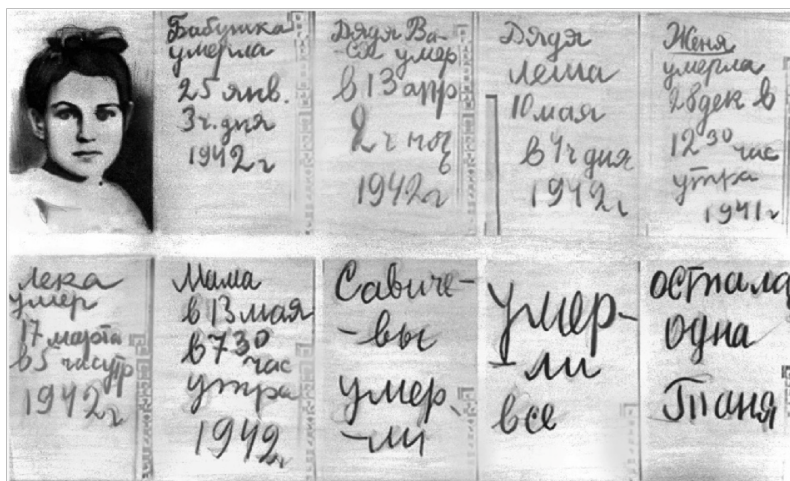 Бабушка
умерла
25 янв.
3ч. дня
1942 г
Дядя Ва-
-ся умер
в 13 апр
2 ч ноч
ь
1942г
Дядя
Леша
10 мая
в 4ч дня
1942г
Женя
умерла
28 дек в
12 30 час
утра
1941 г
Лека
умер
17 марта
в 5 часутр
1942 г
Мама
в 13 мая
в 7 30
час
утра
1942 г
Савиче-
-вы
умер.
-ли
умер-
-ли
все
остала
одна
Таня